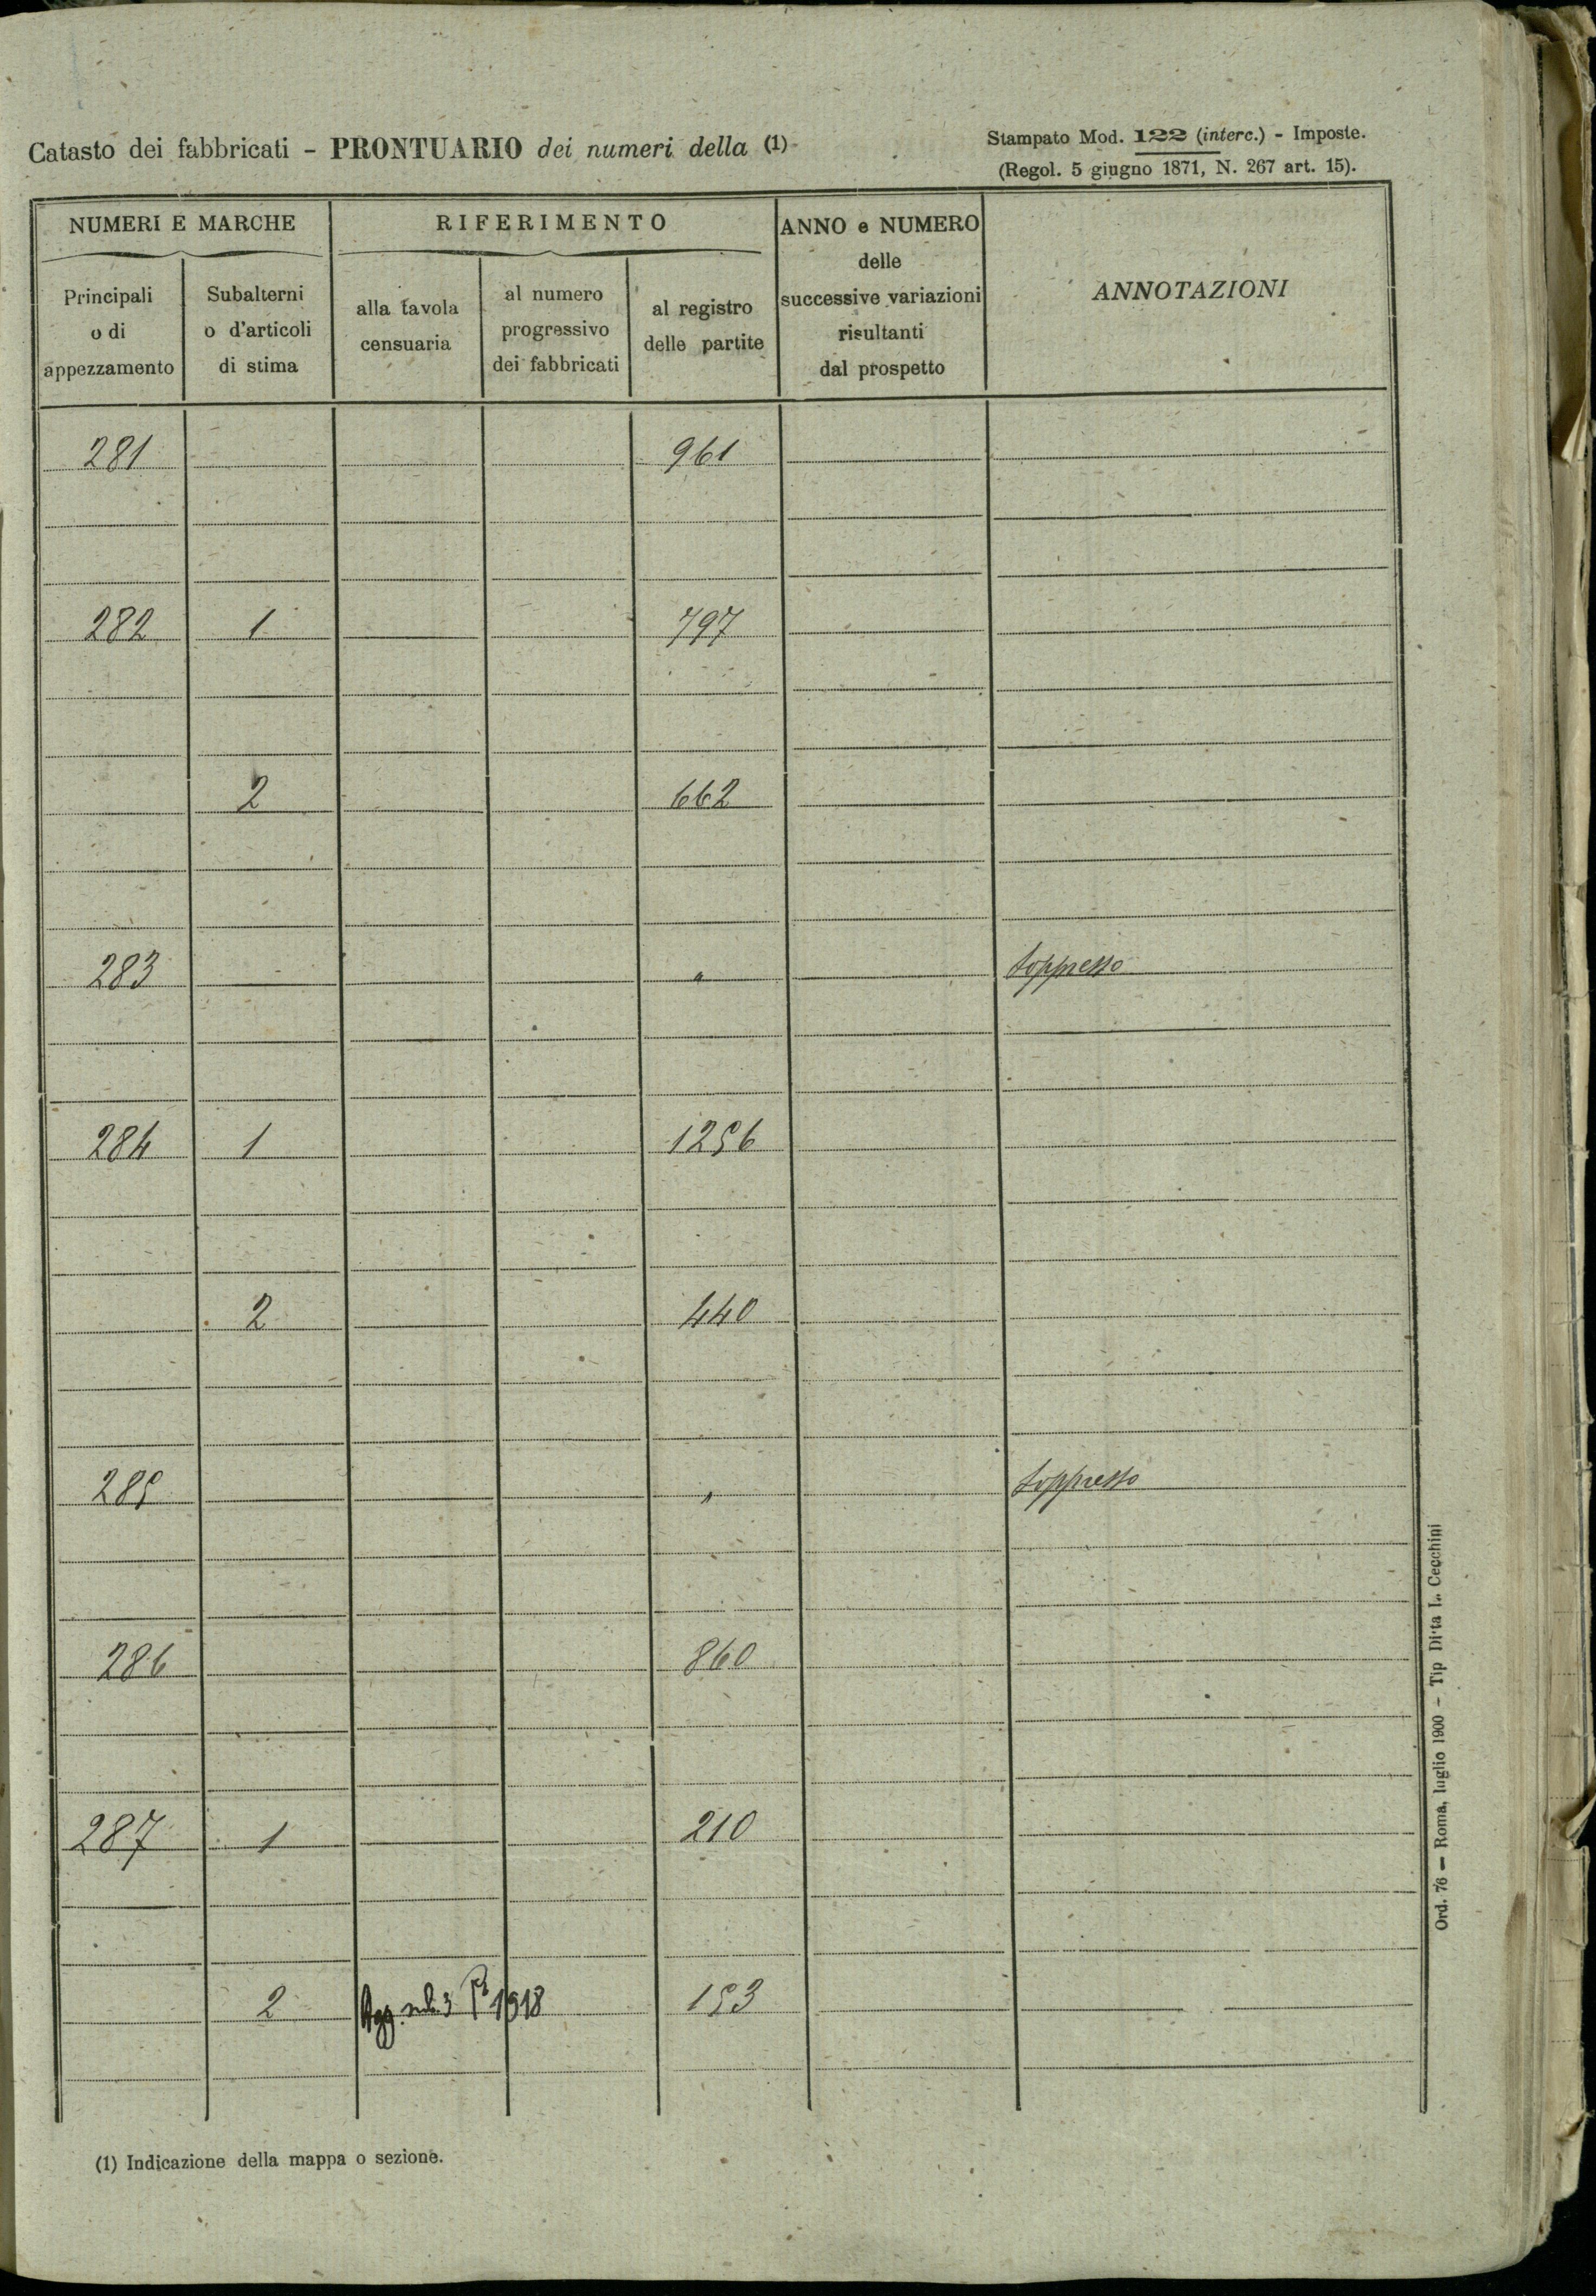 Catasto dei fabbricati - PRONTUARIO dei numeri della (1)
Stampato Mod. 122 (interc.) - Imposte.
(Regol. 5 giugno 1871, N. 267 art. 15).
NUMERI E MARCHE
RIFERIMENTO
ANNO e NUMERO
delle
successive variazioni
risultanti
dal prospetto
ANNOTAZIONI
Principali
o di
appezzamento
Subalterni
o d'articoli
di stima
alla tavola
censuaria
al numero
progressivo
dei fabbricati
al registro
delle partite
281 961
282 1 797
2 662
283 " soppresso
284 1 1256
2 440
285 " soppresso
286 860
287 1 210
2 Agg. sub. 3 1918 153
Ord. 76 — Roma, luglio 1900 - Tip Ditta L. Cecchini
(1) Indicazione della mappa o sezione.